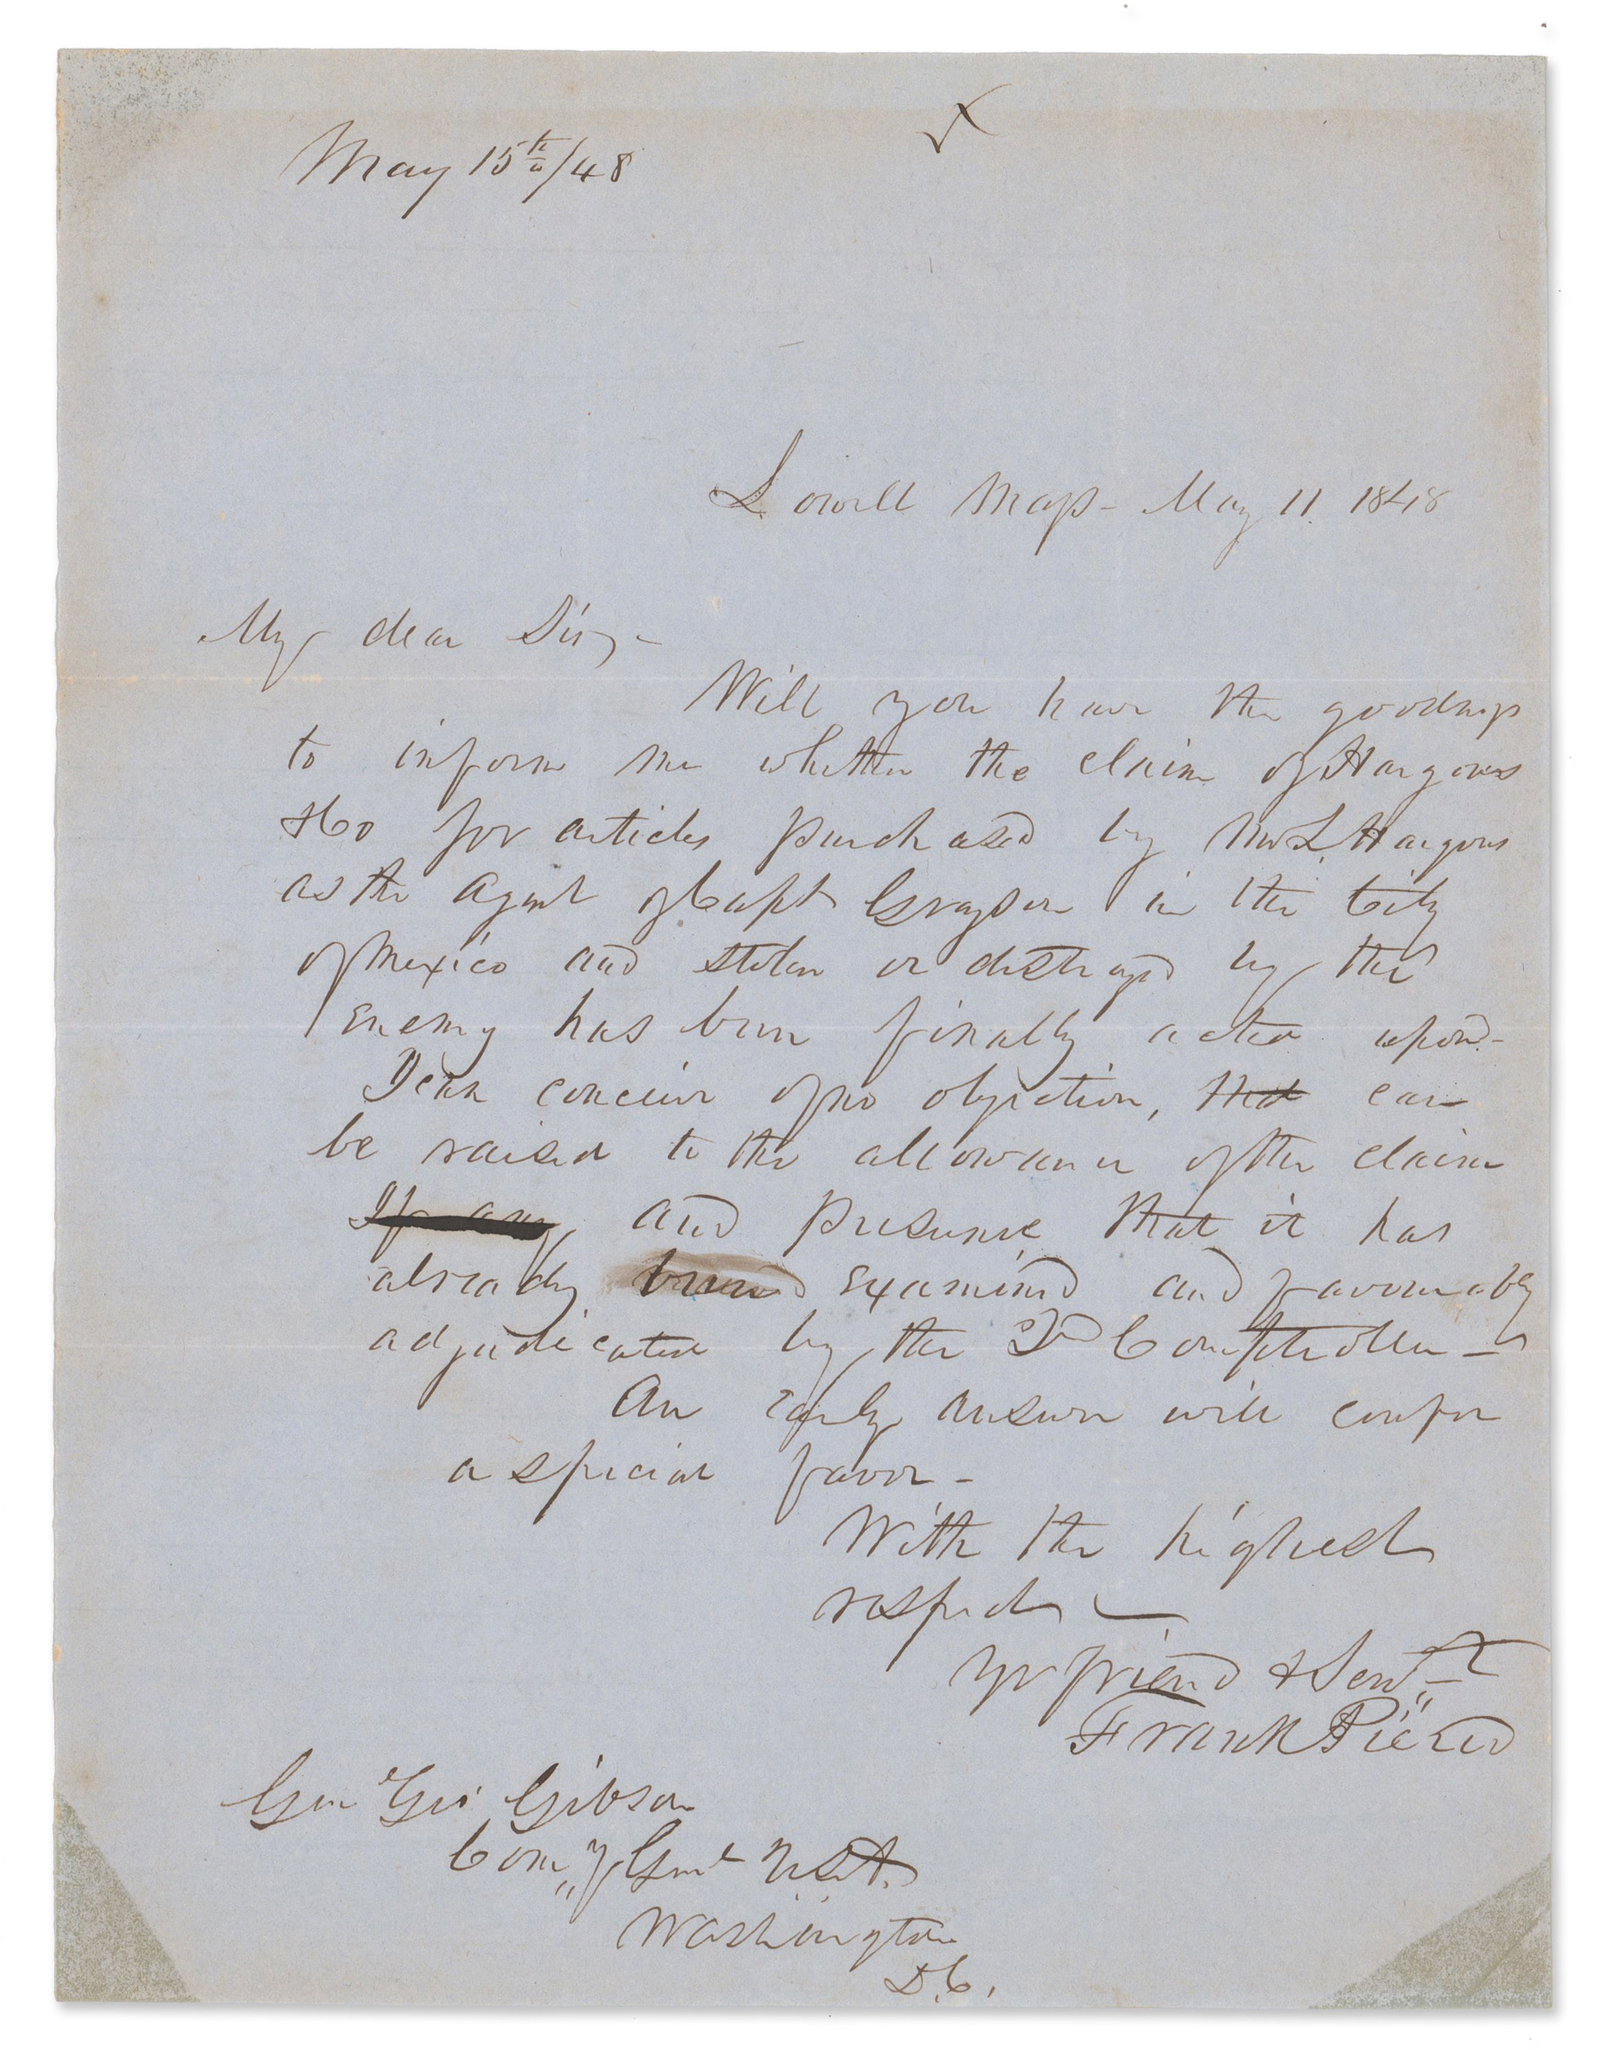 May 15th/48
Lowell Mass - May 11. 1848
My dear Sir, -
Will you have the goodness
to inform me whether the claim of Hargous
& Co for articles purchased by Mr L. Hargous
as the agent of Capt Grayson in the City
of Mexico and stolen or destroyed by the
enemy has been finally acted upon -
I can conceive of no objection, that can
be raised to the allowance of the claim
If any and presume that it has
already been examined and favourably
adjudicated by the 2d Comptroller -
An early answer will confer
a special favor -
With the highest
respect
Yr friend & Servt -
Frank Pierce
Genl Geo Gibson
Com,, y Genl U.S.A.
Washington
D.C.